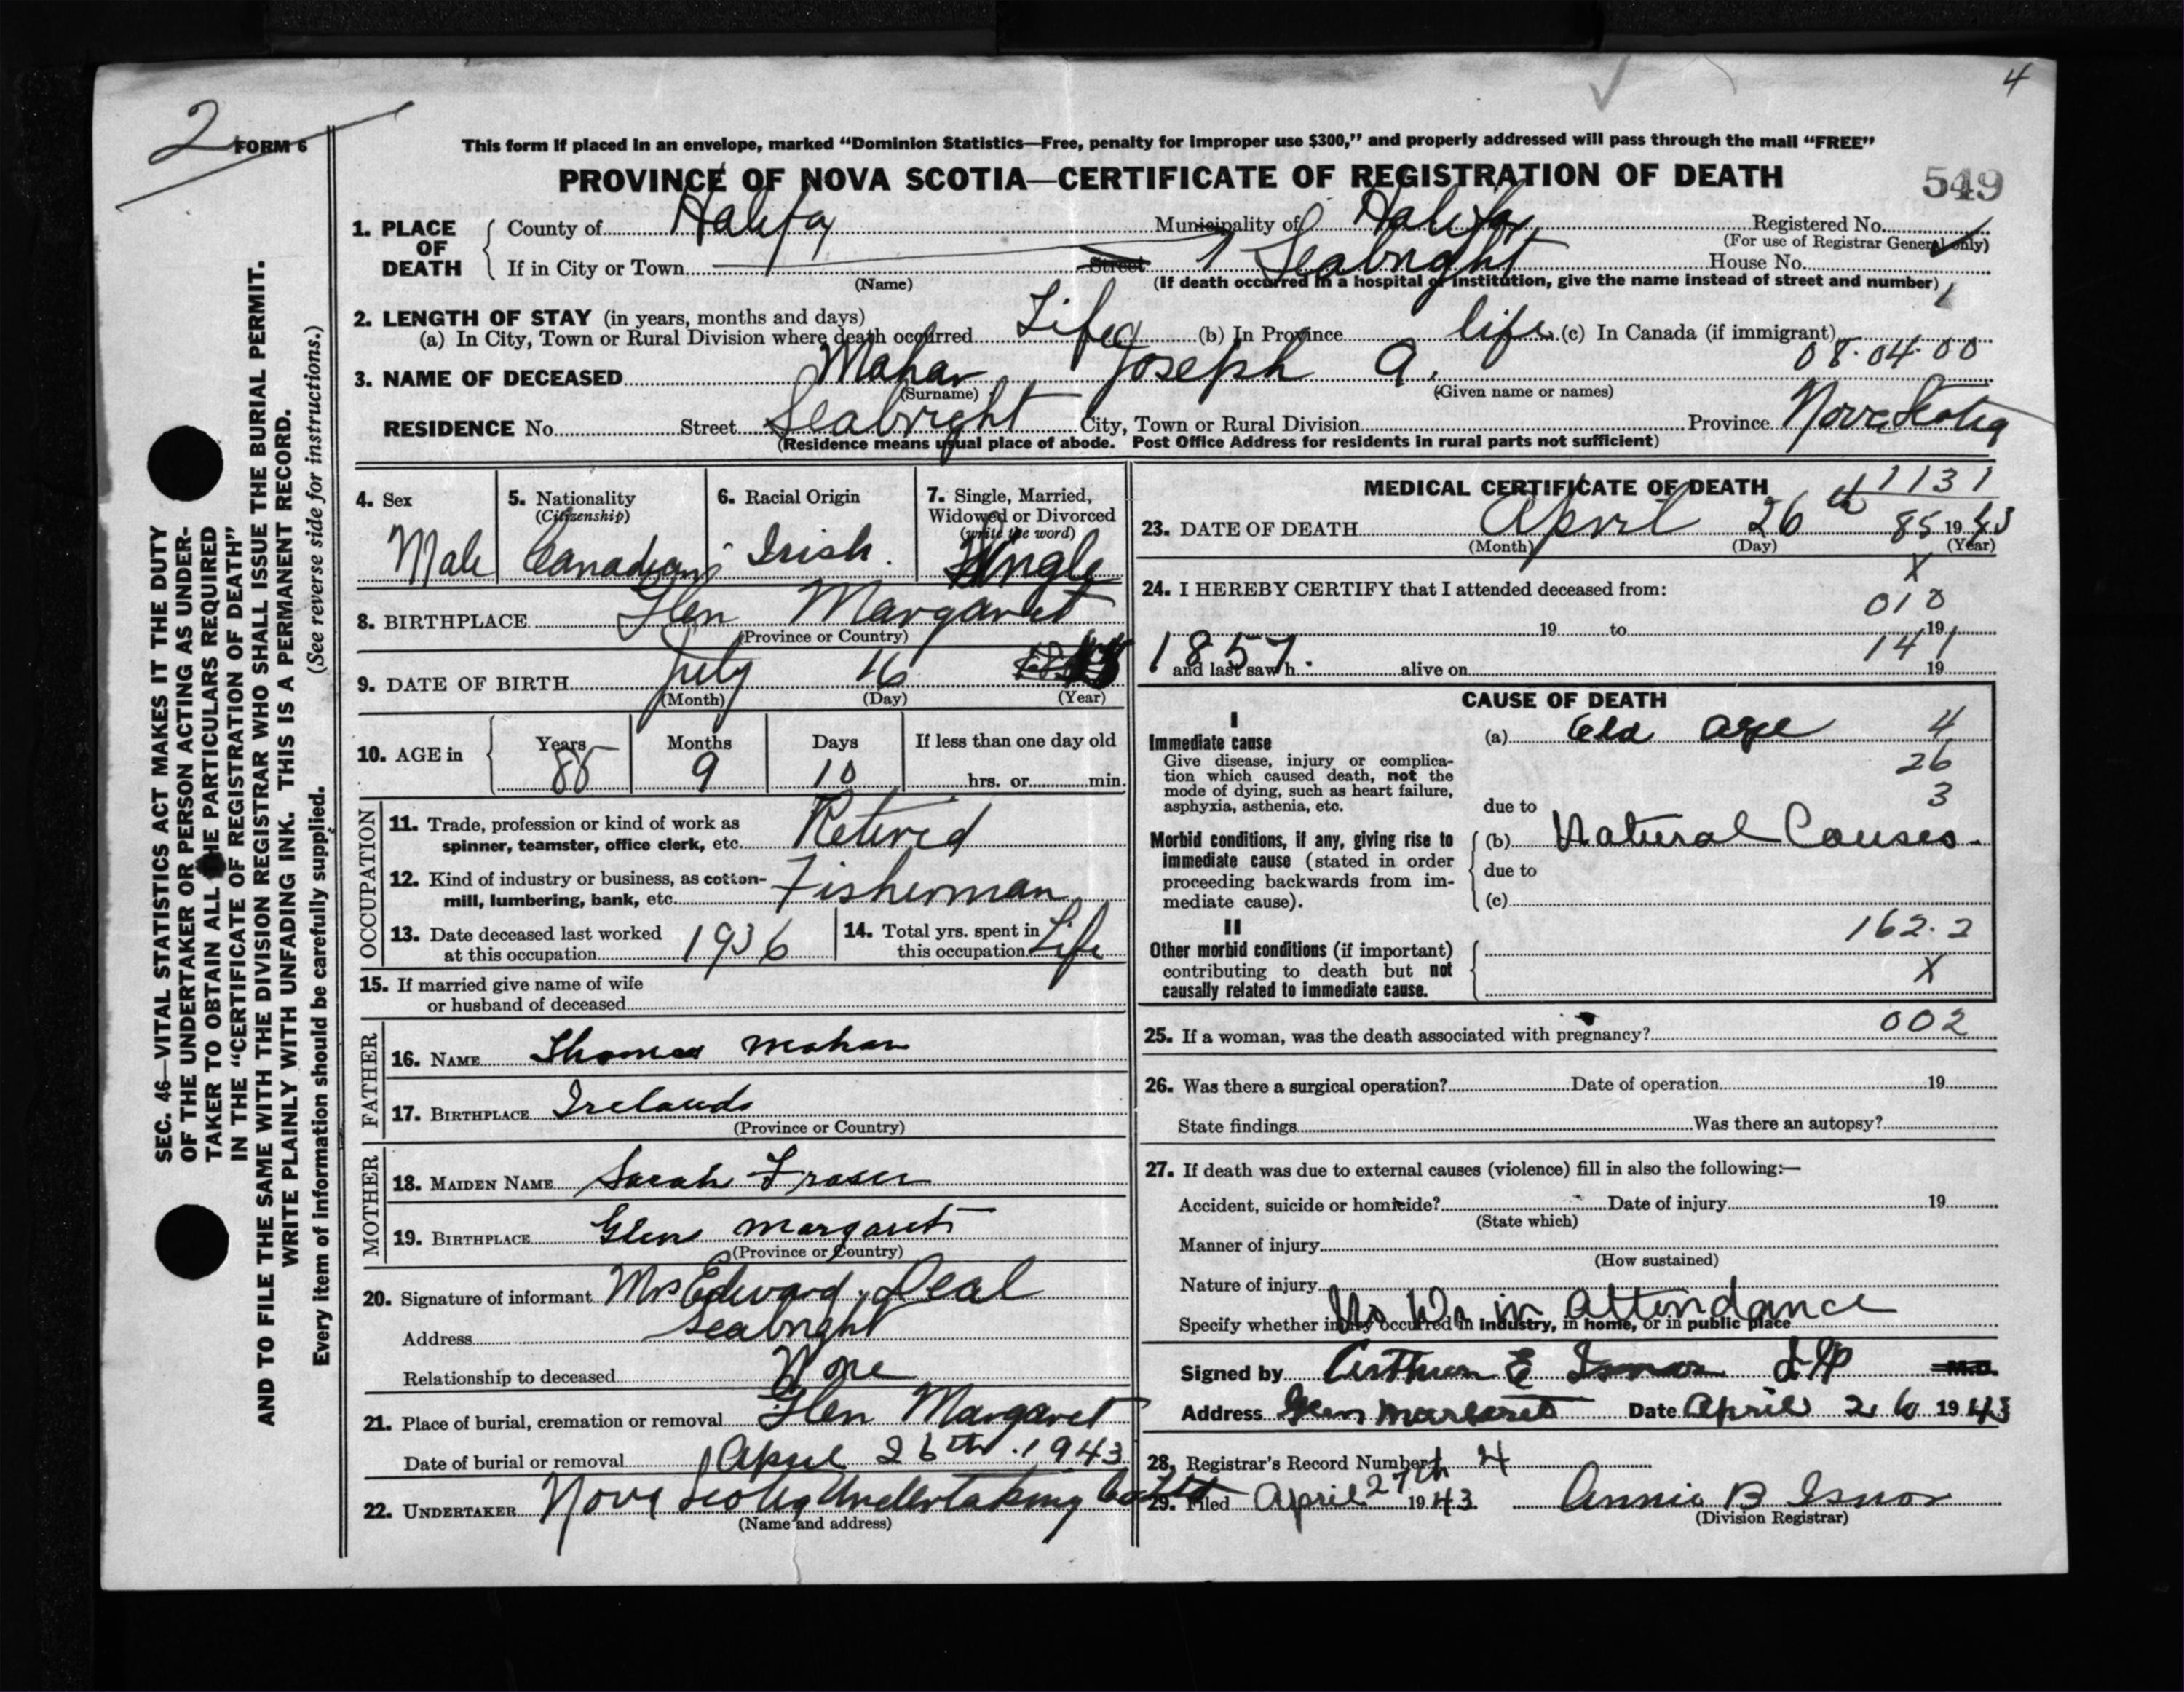 4
2 FORM 6
This form if placed in an envelope, marked “Dominion Statistics—Free, penalty for improper use $300,” and properly addressed will pass through the mail “FREE”
PROVINCE OF NOVA SCOTIA—CERTIFICATE OF REGISTRATION OF DEATH
549
1. PLACE OF DEATH { County of Halifax Municipality of Halifax Registered No.
(For use of Registrar General only)
If in City or Town Street Seabright House No.
(Name) (If death occurred in a hospital or institution, give the name instead of street and number)
2. LENGTH OF STAY (in years, months and days)
(a) In City, Town or Rural Division where death occurred Life (b) In Province life (c) In Canada (if immigrant)
08.04.00
3. NAME OF DECEASED Mahar Joseph A.
(Surname) (Given name or names)
RESIDENCE No. Street Seabright City, Town or Rural Division Province Nova Scotia
(Residence means usual place of abode. Post Office Address for residents in rural parts not sufficient)
4. Sex Male
5. Nationality (Citizenship) Canadian
6. Racial Origin Irish.
7. Single, Married, Widowed or Divorced (write the word) Single
8. BIRTHPLACE Glen Margaret
(Province or Country)
9. DATE OF BIRTH July 16 1857
(Month) (Day) (Year)
10. AGE in { Years 85 Months 9 Days 10 If less than one day old hrs. or min.
OCCUPATION
11. Trade, profession or kind of work as spinner, teamster, office clerk, etc. Retired
12. Kind of industry or business, as cotton-mill, lumbering, bank, etc. Fisherman
13. Date deceased last worked at this occupation 1936
14. Total yrs. spent in this occupation Life
15. If married give name of wife or husband of deceased
FATHER
16. NAME Thomas Mahar
17. BIRTHPLACE Ireland
(Province or Country)
MOTHER
18. MAIDEN NAME Sarah Fraser
19. BIRTHPLACE Glen Margaret
(Province or Country)
20. Signature of informant Mrs Edward Deal
Address Seabright
Relationship to deceased None
21. Place of burial, cremation or removal Glen Margaret
Date of burial or removal April 26th. 1943
22. UNDERTAKER Nova Scotia Undertaking Co Ltd
(Name and address)
MEDICAL CERTIFICATE OF DEATH
1131
23. DATE OF DEATH April 26th 85 1943
(Month) (Day) (Year)
X
24. I HEREBY CERTIFY that I attended deceased from:
010
19 to 19
141
and last saw h alive on 19
CAUSE OF DEATH
I
Immediate cause
Give disease, injury or complication which caused death, not the mode of dying, such as heart failure, asphyxia, asthenia, etc.
(a) Old age 4
26
3
due to
Morbid conditions, if any, giving rise to immediate cause (stated in order proceeding backwards from immediate cause).
(b) Natural Causes
due to
(c)
II
162.2
Other morbid conditions (if important) contributing to death but not causally related to immediate cause.
X
25. If a woman, was the death associated with pregnancy? 002
26. Was there a surgical operation? Date of operation 19
State findings Was there an autopsy?
27. If death was due to external causes (violence) fill in also the following:—
Accident, suicide or homicide? Date of injury 19
(State which)
Manner of injury
(How sustained)
Nature of injury
No Dr. in Attendance
Specify whether injury occurred in industry, in home, or in public place
Signed by Arthur E Isnor J P M.D.
Address Glen Margaret Date April 26 1943
28. Registrar's Record Number 4
29. Filed April 27th 1943. Annie B Isnor
(Division Registrar)
SEC. 46—VITAL STATISTICS ACT MAKES IT THE DUTY
OF THE UNDERTAKER OR PERSON ACTING AS UNDER-
TAKER TO OBTAIN ALL THE PARTICULARS REQUIRED
IN THE “CERTIFICATE OF REGISTRATION OF DEATH”
AND TO FILE THE SAME WITH THE DIVISION REGISTRAR WHO SHALL ISSUE THE BURIAL PERMIT.
WRITE PLAINLY WITH UNFADING INK. THIS IS A PERMANENT RECORD.
Every item of information should be carefully supplied. (See reverse side for instructions.)